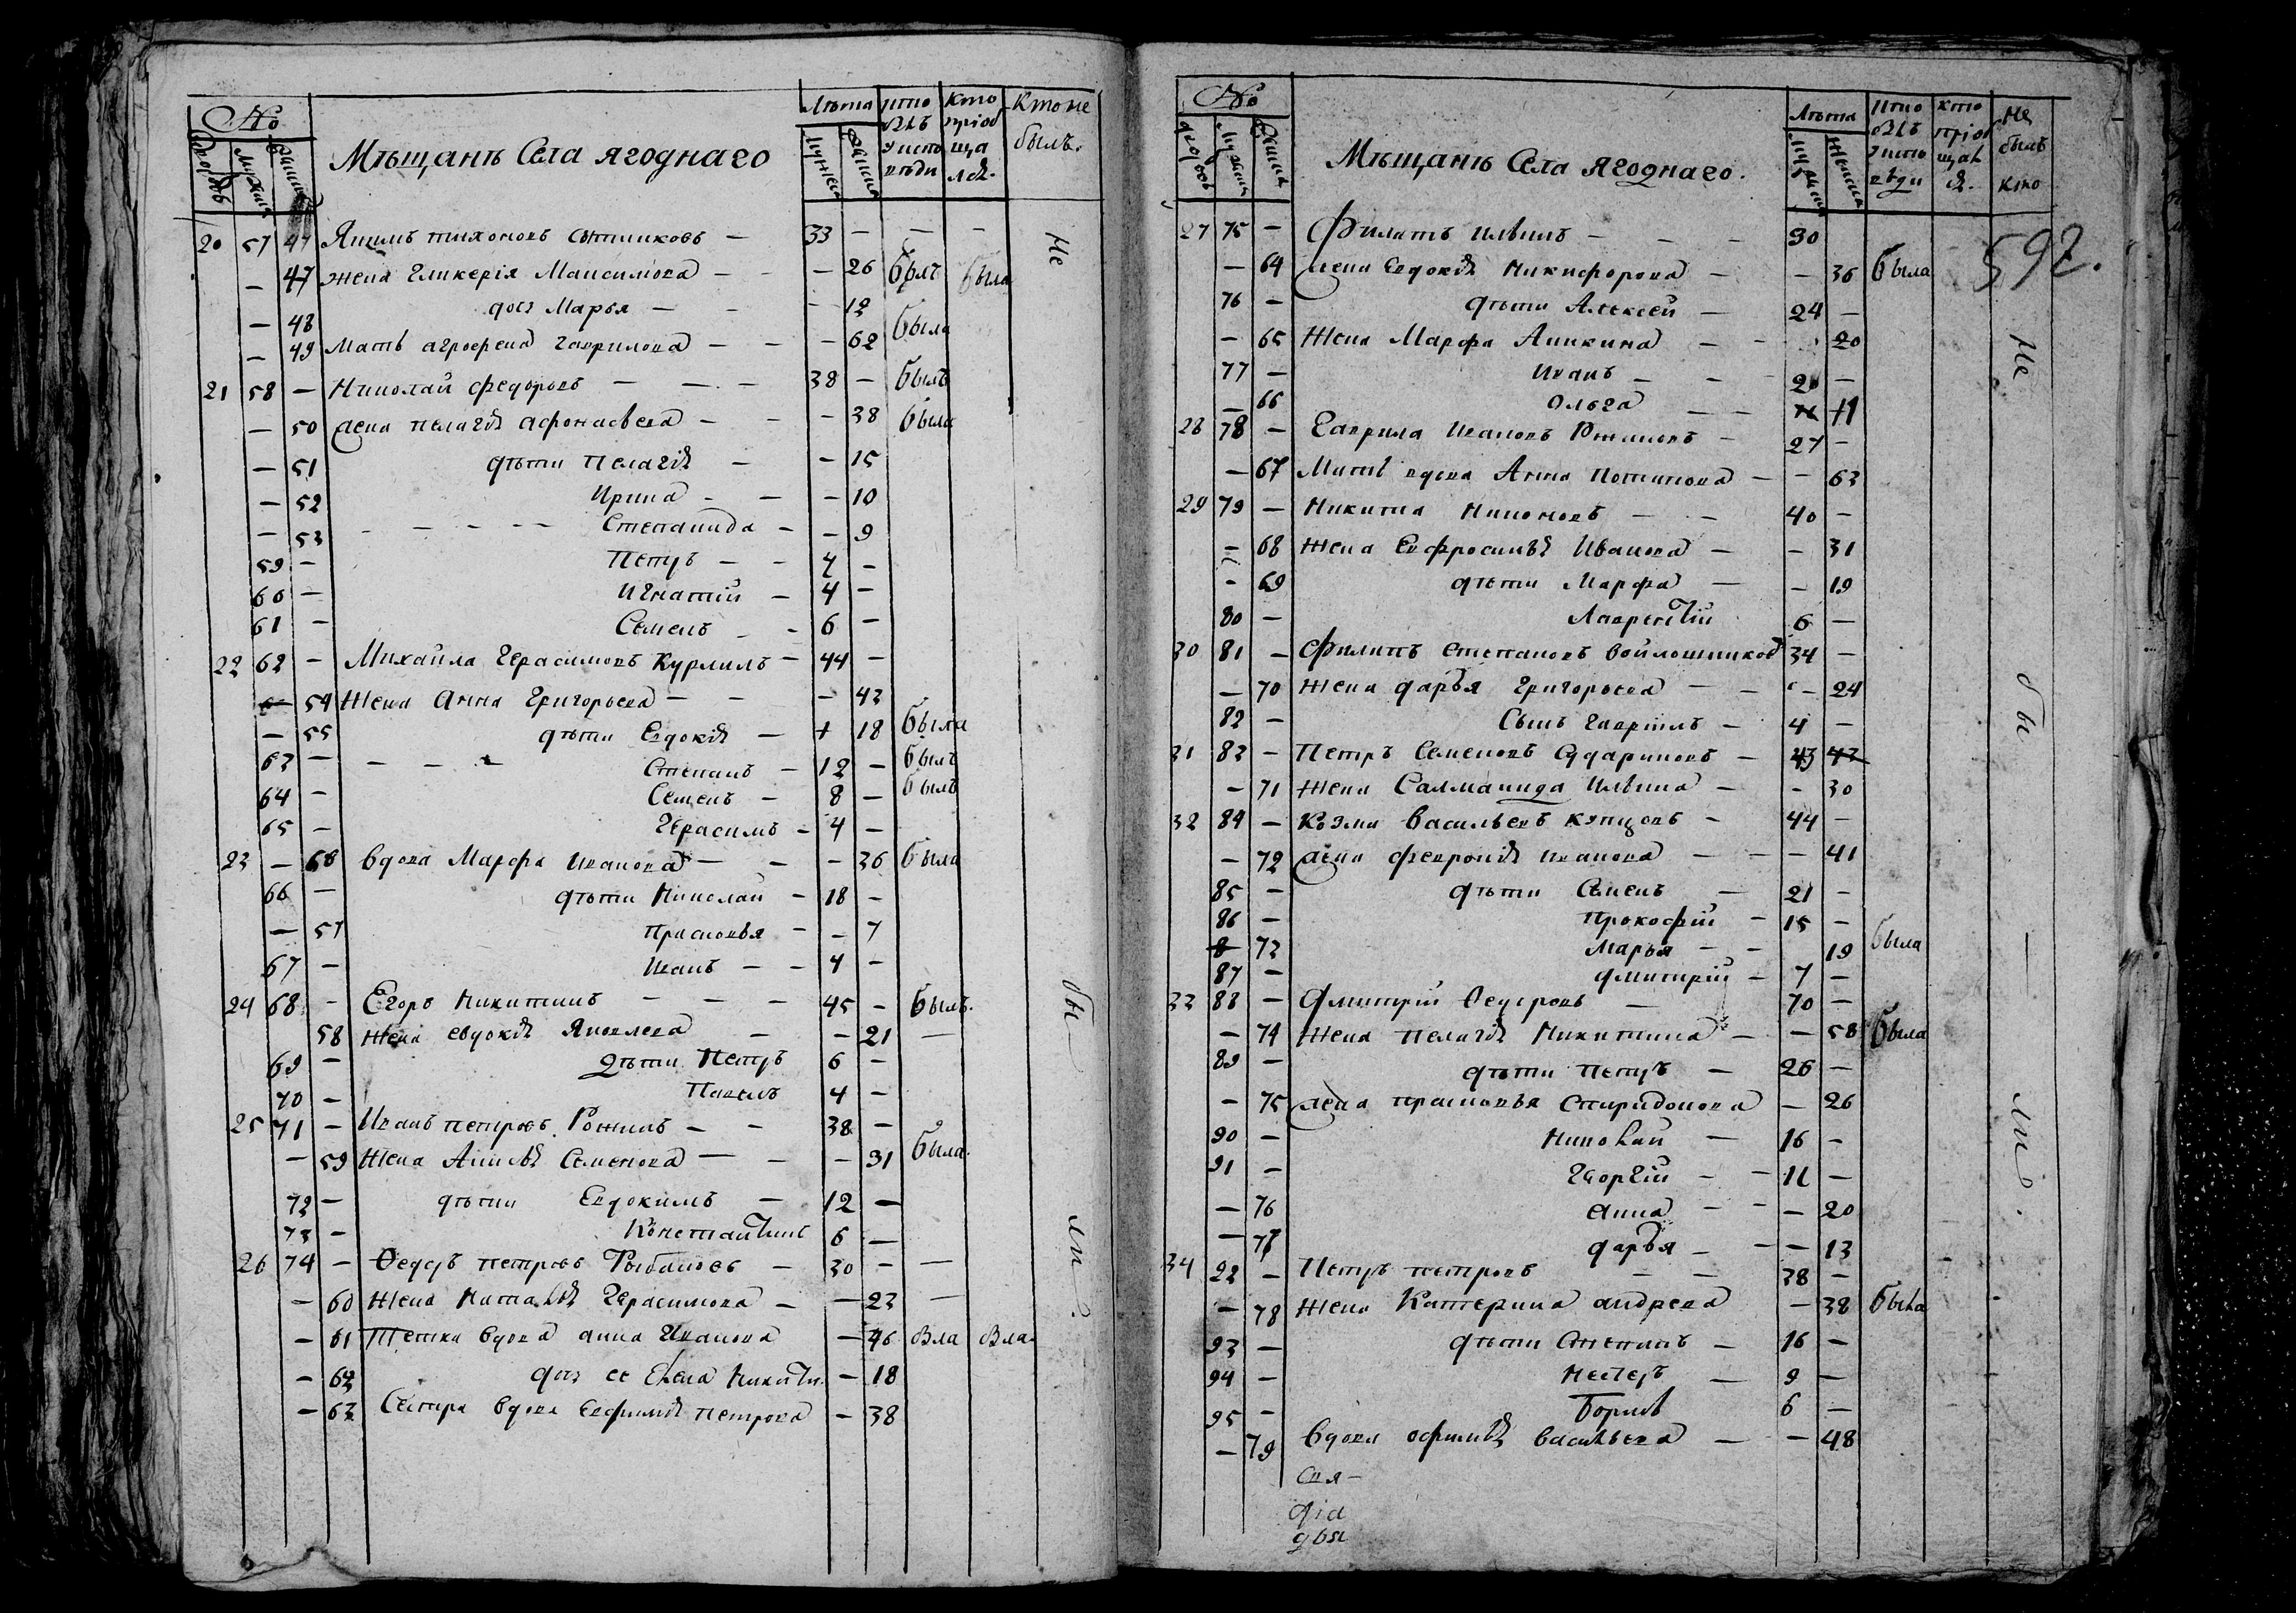 № Мѣщанъ Села ягоднаго Лѣта кто былъ у исповѣди кто пріобщался Кто не былъ.
дворовъ мужска женска мужска женска
20 57 47 Якимъ тихоновъ — 33 — — —
— 47 жена Гликерія Максимова — — 26 былъ была
— 48 дочь Марья — — 12
— 49 Мать агрофена гаврилова — — — 62 была
21 58 — Николай федоровъ — — — 38 — былъ
— 50 жена пелагѣя афонасьева — — — 38 была
— 51 дѣти Пелагѣя — — 15
— 52 Ирина — — — 10
— 53 — — — — — Степанида — — 9
59 — Петръ — — 7 —
60 — Игнатій — 4 —
61 — Семенъ — — 6 —
22 62 — Михайла Герасимовъ Курмилъ — 44 —
— 54 Жена Анна Григорьева — — — 43
— 55 дѣти Евдокія — 18 была
63 — — — — Степанъ — 12 — былъ
64 — Семенъ — 8 — былъ
65 — Герасимъ — 4 —
23 — 68 вдова Марфа Иванова — — — 36 была
66 — дѣти Николай — 18 —
— 57 Прасковья — — 7
67 — Иванъ — — 4 —
24 68 — Егоръ Никитинъ — — — 45 — былъ.
58 жена евдокія Яковлева — — 21 —
69 — дѣти Петръ 6 —
70 — Павелъ 4 —
25 71 — Иванъ петровъ Рожинъ — — 38 —
— 59 Жена Семенова — — — 31 была.
72 — дѣти Евдокимъ — 12 —
73 — Константинъ 6 —
26 74 — Ѳедоръ петровъ Рыбаковъ — 30 — —
— 60 Жена Наталья Герасимова — — 23 —
— 61 Тетка вдова анна Иванова — 46 Была Была
— 62 дочь ее Елена Никити. — 18
— 63 Сестра вдова Евфимія петрова — 38
Не бы ли.
№ Мѣщанъ Села ягоднаго. Лѣта кто былъ у исповѣди кто пріобщался. Не былъ кто
дворовъ мужска женска мужска женска
592.
27 75 — Филатъ Ильинъ — — — 90
— 64 жена Евдокія Никифорова — — 36 была
76 — дѣти Алексей — 24 —
— 65 Жена Марфа Аникина — — 20
77 — Иванъ — — 20 —
— 66 Ольга — — 11
28 78 — Гаврила Ивановъ — 27 —
— 67 Мать вдова Анна Потапова — — 63
29 79 — Никита Никоновъ — — 40 —
— 68 Жена Евфросинія Иванова — — 31
— 69 дѣти Марфа — — 19
80 — Лаврентій 6 —
30 81 — Филипъ степановъ войлошников 34 —
— 70 Жена дарья Григорьева — — — 24
82 — Сынъ гаврилъ — 4 —
31 83 — Петръ Семеновъ Судариковъ — 43
— 71 Жена Саламанида Ильина — — 30
32 84 — Козма васильевъ купцовъ — 44 —
— 72 жена февронія иванова — — — 41
85 — дѣти Семенъ — 21 —
86 — Прокофій — 15 —
73 Марья — — 19 была
87 — дмитрій — 7 —
33 88 — Дмитрій Ѳедоровъ — 70 —
— 74 Жена Пелагѣя Никитина — — 58 была
89 — дѣти Петръ — 26 —
— 75 жена прасковья Спиридонова — 26
90 — Николай — 16 —
91 — Георгій — — 11 —
— 76 анна — — — 20
— 77 дарья — — — 13
34 92 — Петръ петровъ — — 38 —
— 78 Жена Катерина андреева — 38 была
93 — дѣти Степанъ — 16 —
94 — Нестеръ — 9 —
95 — Борисъ 6 —
— 79 вдова офимія васильева — — 48
Не бы — ли.
свя—
діа
двя